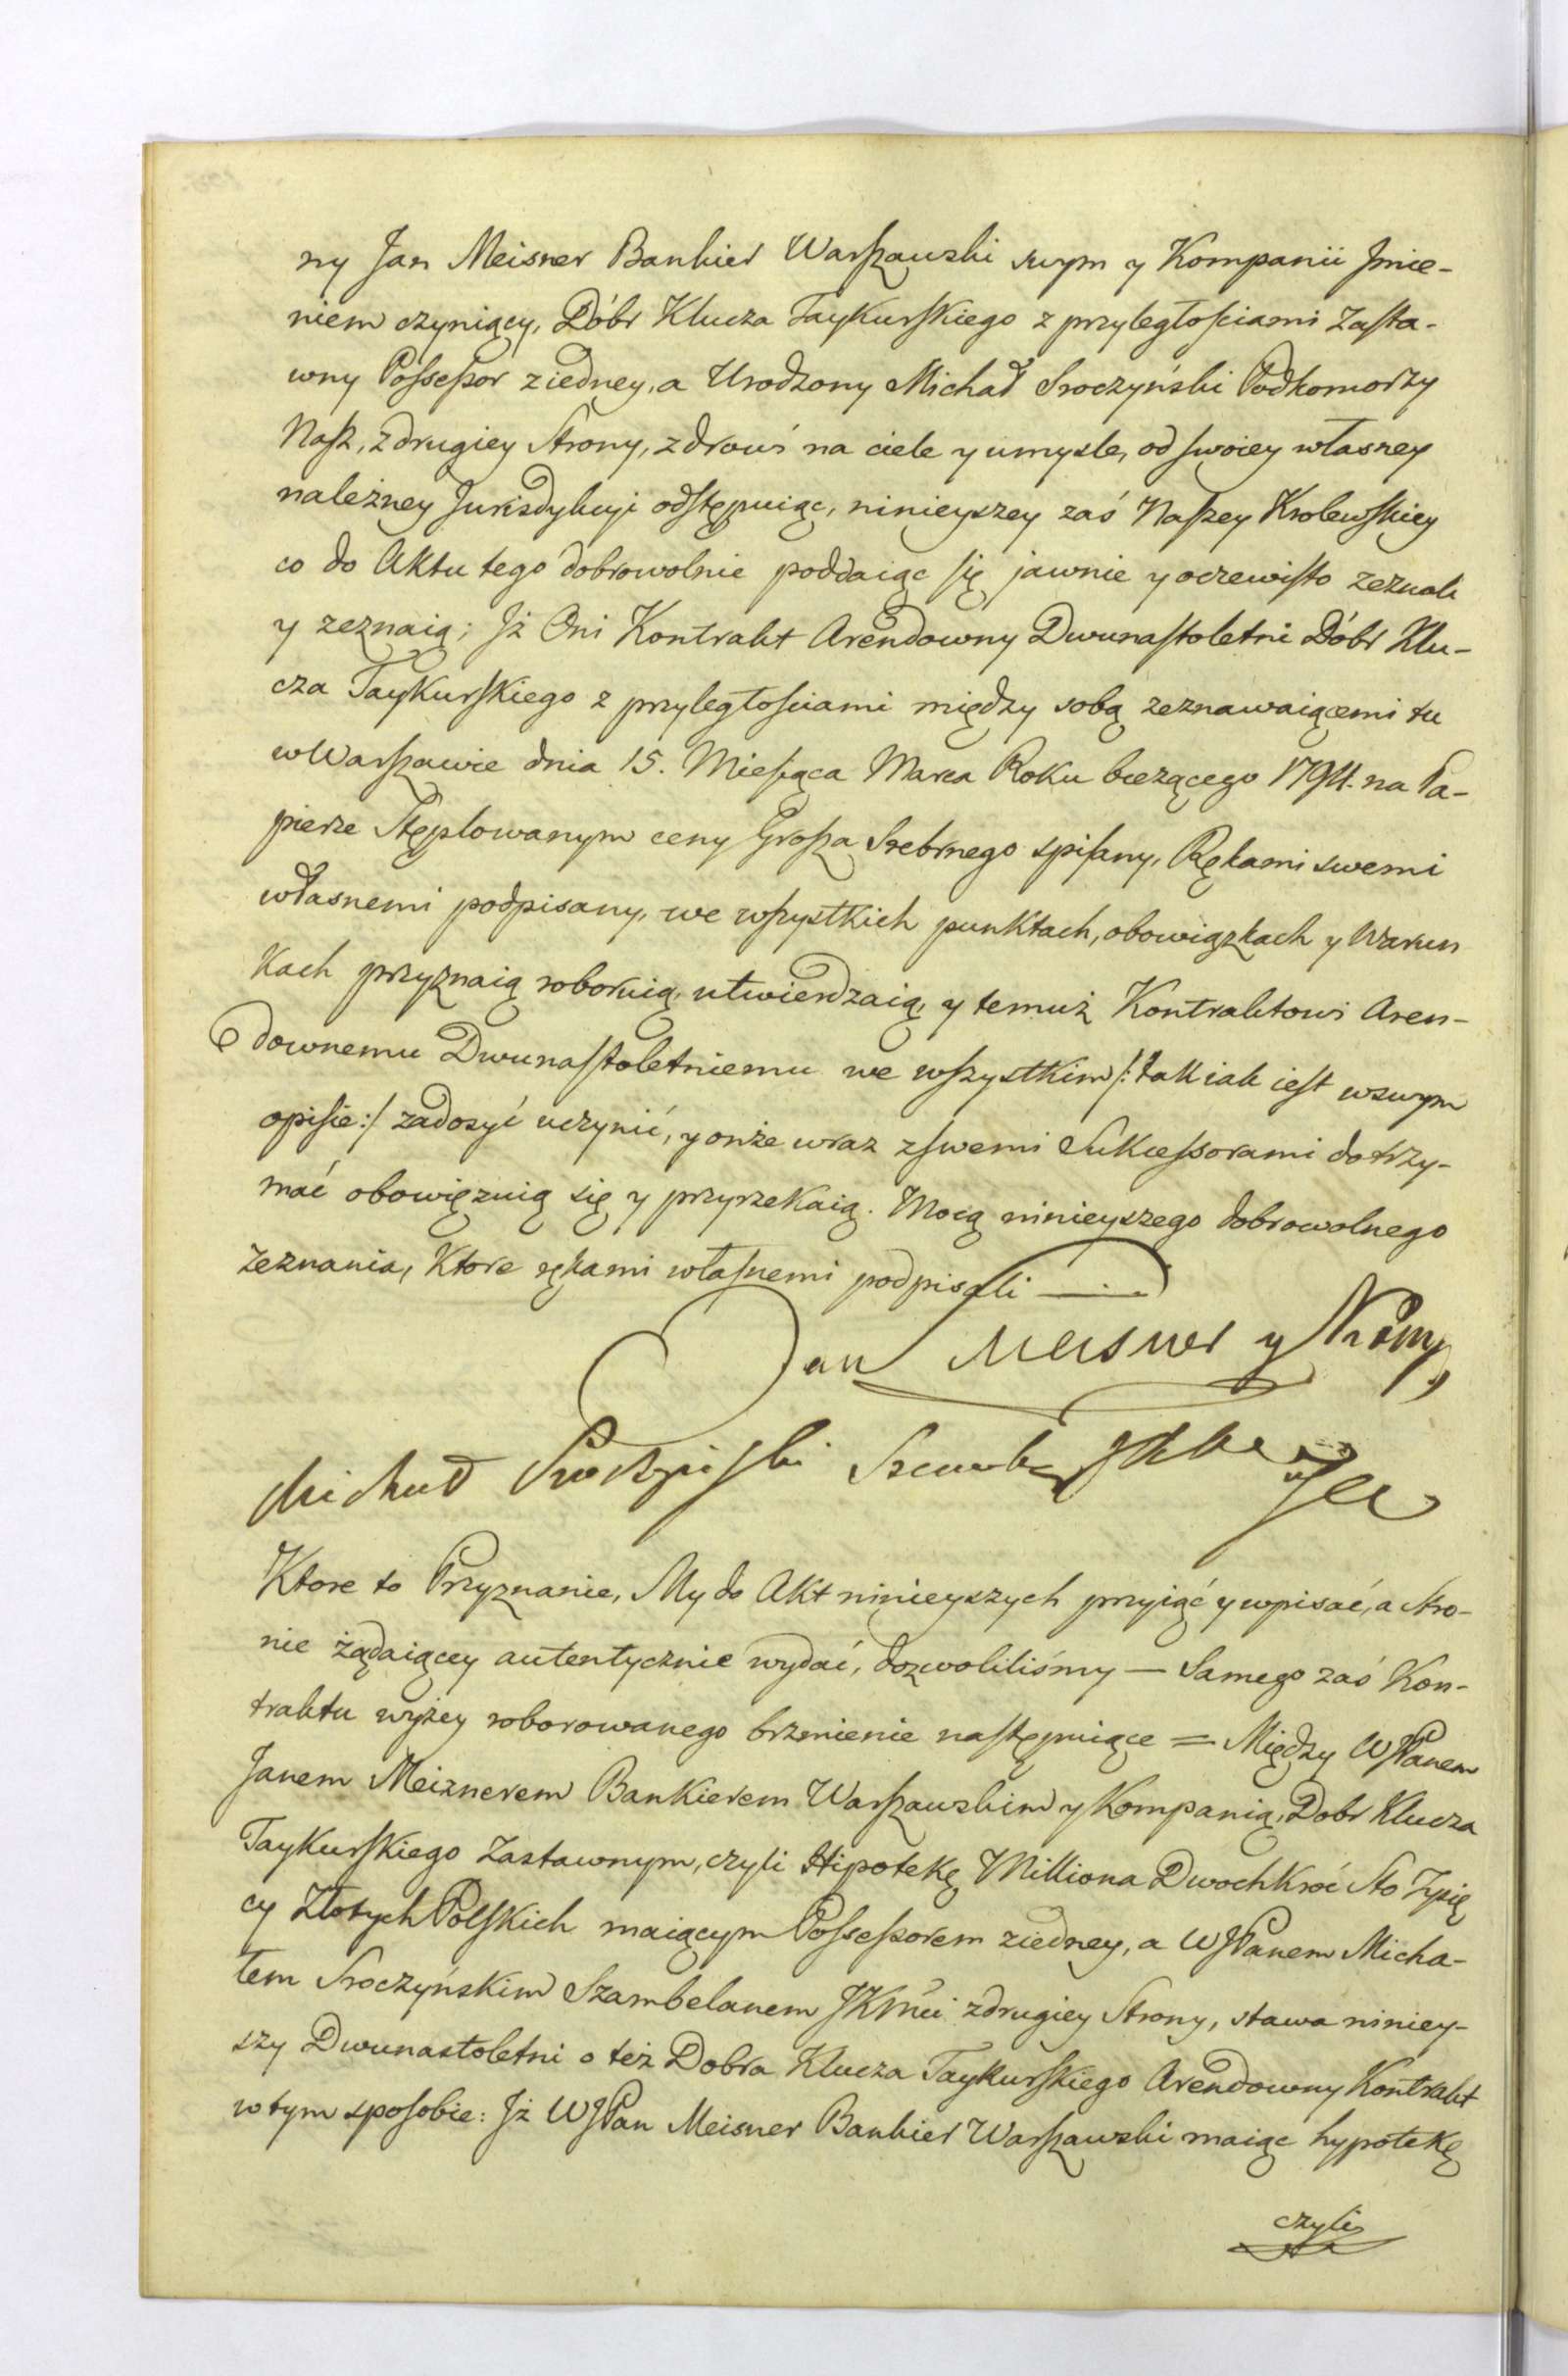 ny Jan Meisner Bankier Warszawski swym y Kompanii Jmie-
niem czyniący, Dóbr Klucza Taykurskiego z przyległościami Zasta-
wny Possessor ziedney, a Urodzony Michał Sroczyński Podkomorzy
Nasz, z drugiey Strony, zdrowi na ciele y umysle, od swoiey własney
należney Jurisdykcyi odstępuiąc, ninieyszey zaś Naszey Krolewskiey
co do Aktu tego dobrowolnie poddaiąc się jawnie y oczewisto zeznali
y zeznaią; Jż Oni Kontrakt Arendowny Dwunastoletni Dóbr Klu-
cza Taykurskiego z przyległościami między sobą zeznawaiącemi tu
w Warszawie dnia 15. Miesiąca Marca Roku bieżącego 1794. na Pa-
pierze Stęplowanym ceny Grosza Srebrnego spisany, Rękami swemi
własnemi podpisany, we wszystkich punktach, obowiązkach y Warun
kach przyznaią roboruią, utwierdzaią, y temuż Kontraktowi Aren-
downemu Dwunastoletniemu we wszystkim /: tak iak iest w swym
opisie :/ zadosyć uczynić, y onże wraz z swemi Sukcessorami dotrzy-
mać obowięzuią się y przyrzekaią. Mocą ninieyszego dobrowolnego
zeznania, Ktore rękami własnemi podpisali
Jan Meisner y Komp
Michał Sroczyński
Ktore to Przyznanie, My do Akt ninieyszych przyiąć y wpisać, a Stro-
nie żądaiącey autentycznie wydać, dozwoliliśmy — Samego zaś Kon-
traktu wyżey roborowanego brzmienie następuiące = Między WJPanem
Janem Meiznerem Bankierem Warszawskim y Kompanią, Dobr Klucza
Taykurskiego Zastawnym, czyli Hipotekę Milliona Dwochkroć Sto Tysię
cy Złotych Polskich maiącym Possessorem ziedney, a WJPanem Micha-
łem Sroczyńskim Szambelanem JKMci z drugiey Strony, stawa niniey-
szy Dwunastoletni o też Dobra Klucza Taykurskiego Arendowny Kontrakt
w tym sposobie: Jż WJPan Meisner Bankier Warszawski maiąc hypotekę
czyli